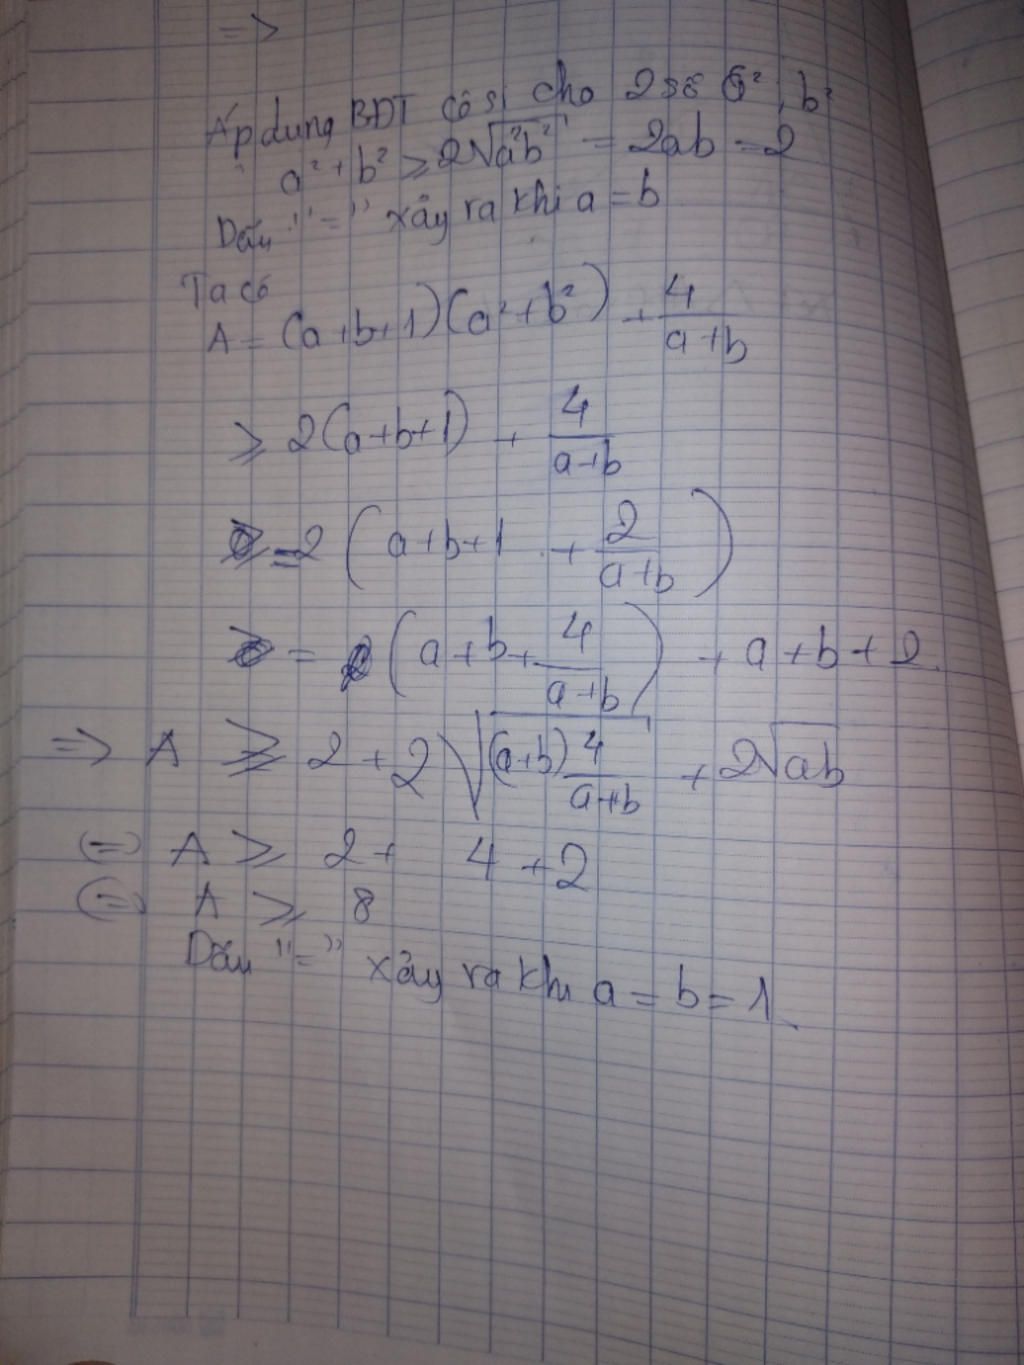 =>
Áp dụng BĐT Cô si cho 2 số a², b²
a² + b² ≥ 2√(a²b²) = 2ab = 2
Dấu "=" xảy ra khi a = b
Ta có
A = (a+b+1)(a²+b²) + 4/(a+b)
≥ 2(a+b+1) + 4/(a+b)
= 2(a+b+1 + 2/(a+b))
= (a+b+ 4/(a+b)) + a+b+2.
=> A ≥ 2 + 2√((a+b) 4/(a+b)) + 2√(ab)
(=) A ≥ 2 + 4 + 2
(=) A ≥ 8
Dấu "=" xảy ra khi a = b = 1